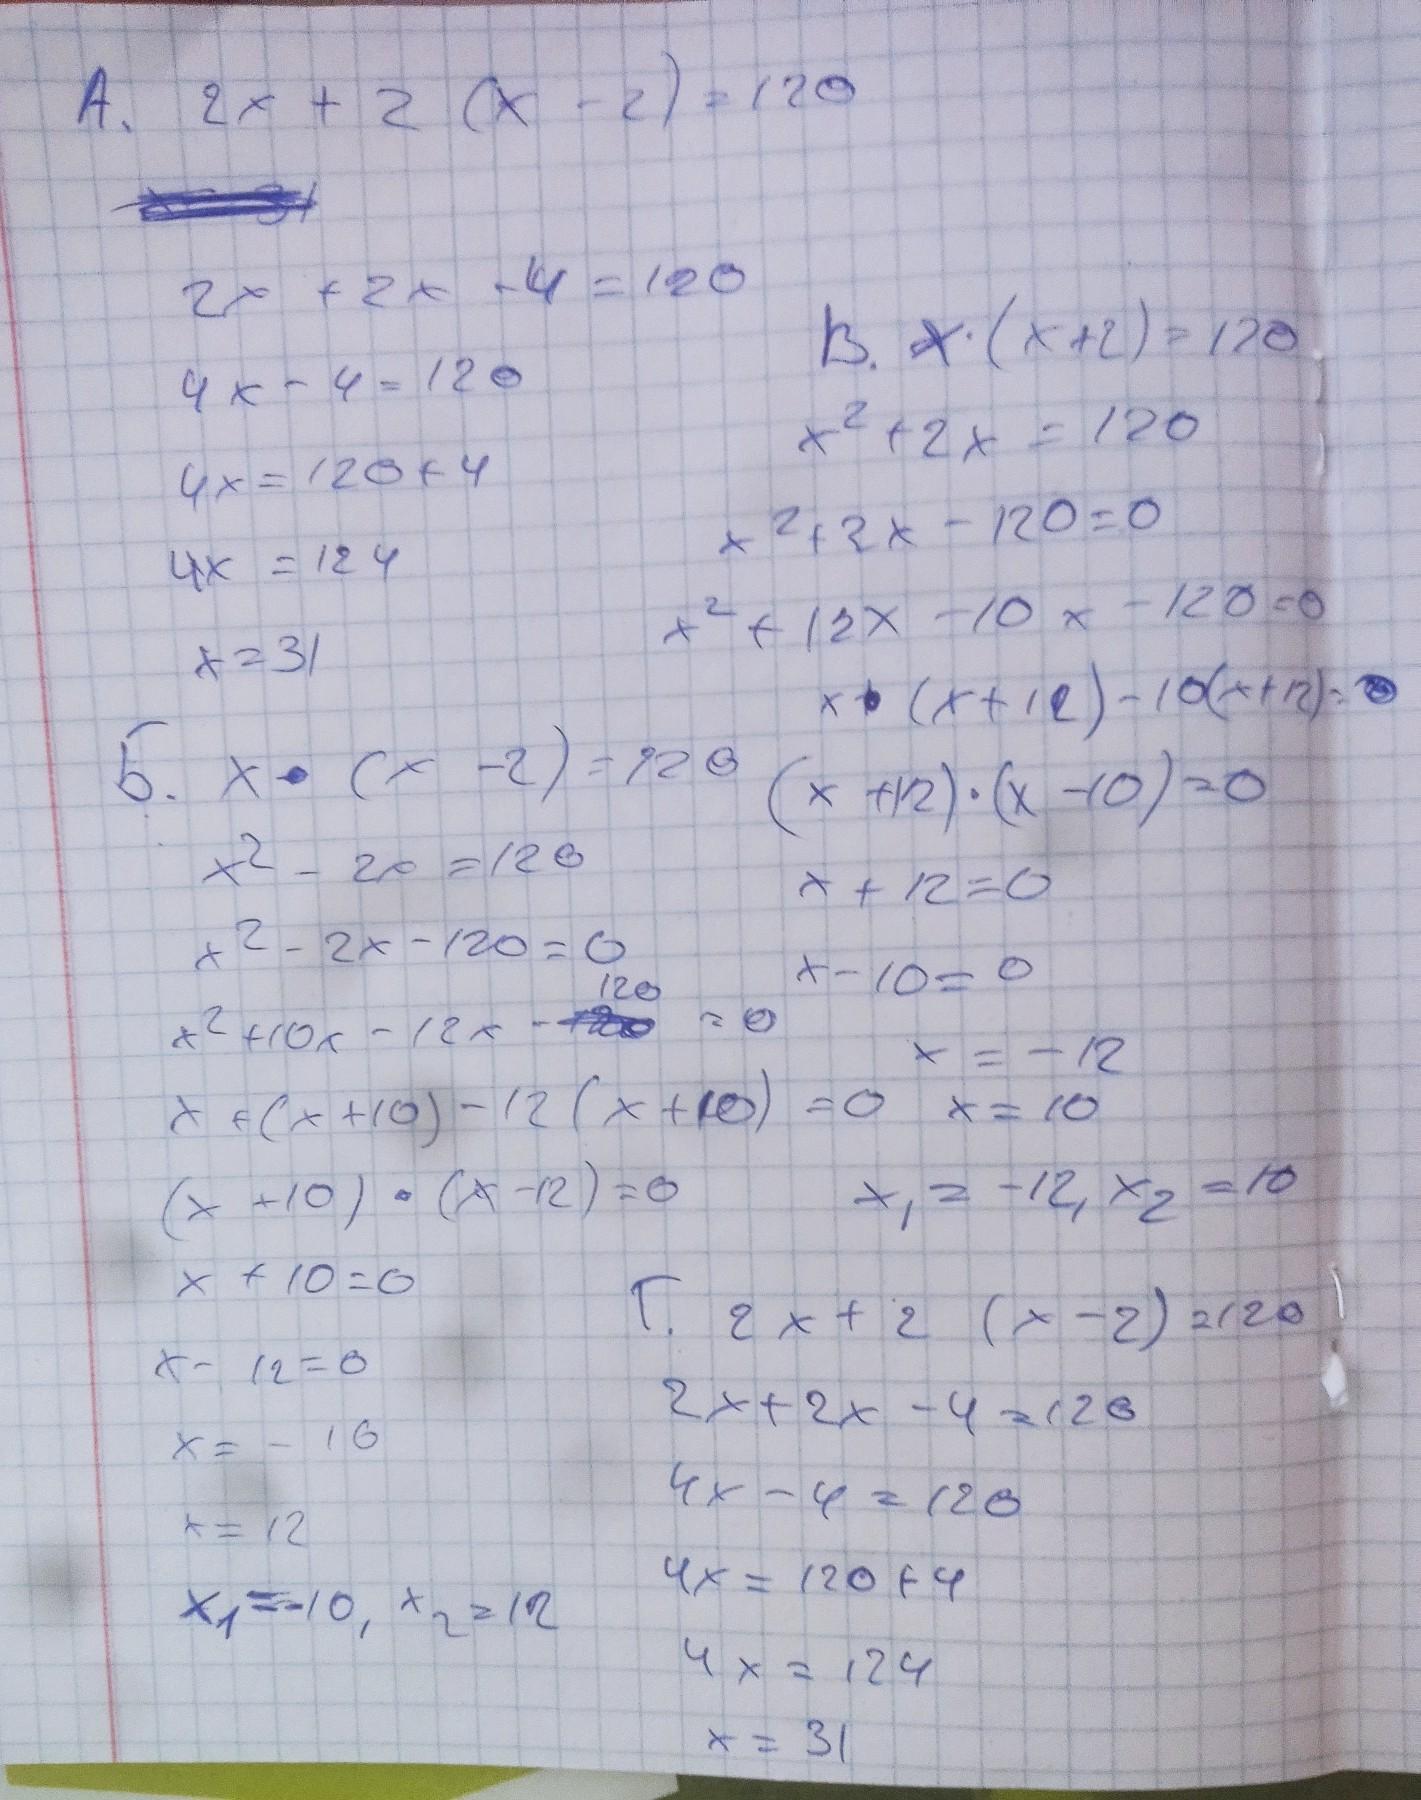 А. 2x + 2 (x - 2) = 120
2x + 2x - 4 = 120
4x - 4 = 120
4x = 120 + 4
4x = 124
x = 31
Б. x • (x - 2) = 120
x² - 2x = 120
x² - 2x - 120 = 0
x² + 10x - 12x - 120 = 0
x • (x + 10) - 12 (x + 10) = 0
(x + 10) • (x - 12) = 0
x + 10 = 0
x - 12 = 0
x = - 10
x = 12
x₁ = -10, x₂ = 12
В. x · (x + 2) = 120
x² + 2x = 120
x² + 2x - 120 = 0
x² + 12x - 10x - 120 = 0
x • (x + 12) - 10(x + 12) = 0
(x + 12) · (x - 10) = 0
x + 12 = 0
x - 10 = 0
x = - 12
x = 10
x₁ = -12, x₂ = 10
Г. 2x + 2 (x - 2) = 120
2x + 2x - 4 = 120
4x - 4 = 120
4x = 120 + 4
4x = 124
x = 31